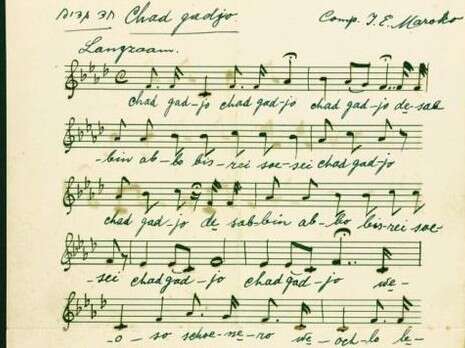 חד גדיא Chad gadjo Comp. I.E. Maroko
Langzaam.
chad gad-jo chad gad-jo chad gad-jo de-sab
-bin ab-bo bis-rei soe-sei chad gad-jo
chad gad-jo de sab-bin ab-bo bis-rei soe-
sei chad gad-jo chad gad-jo we-
-o-so schoe-ne-ro we-och-lo le-